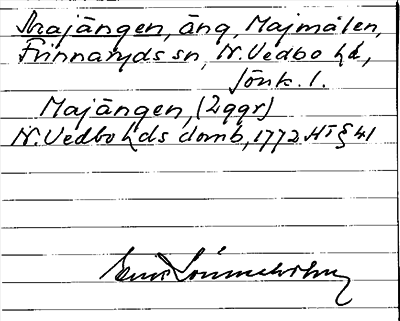 Majängen, äng, Majmålen,
Finnaryds sn, N. Vedbo hd,
Jönk. l.
Majängen, (2 ggr)
N. Vedbo hds domb, 1772 HT § 41